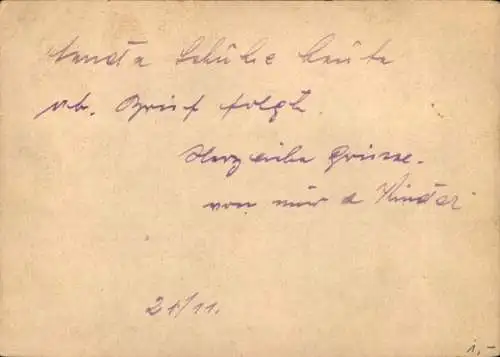 sende Schuhe heute
ab. Brief folgt.
Herzliche Grüsse.
von mir u Kinder
21/11.
1,-